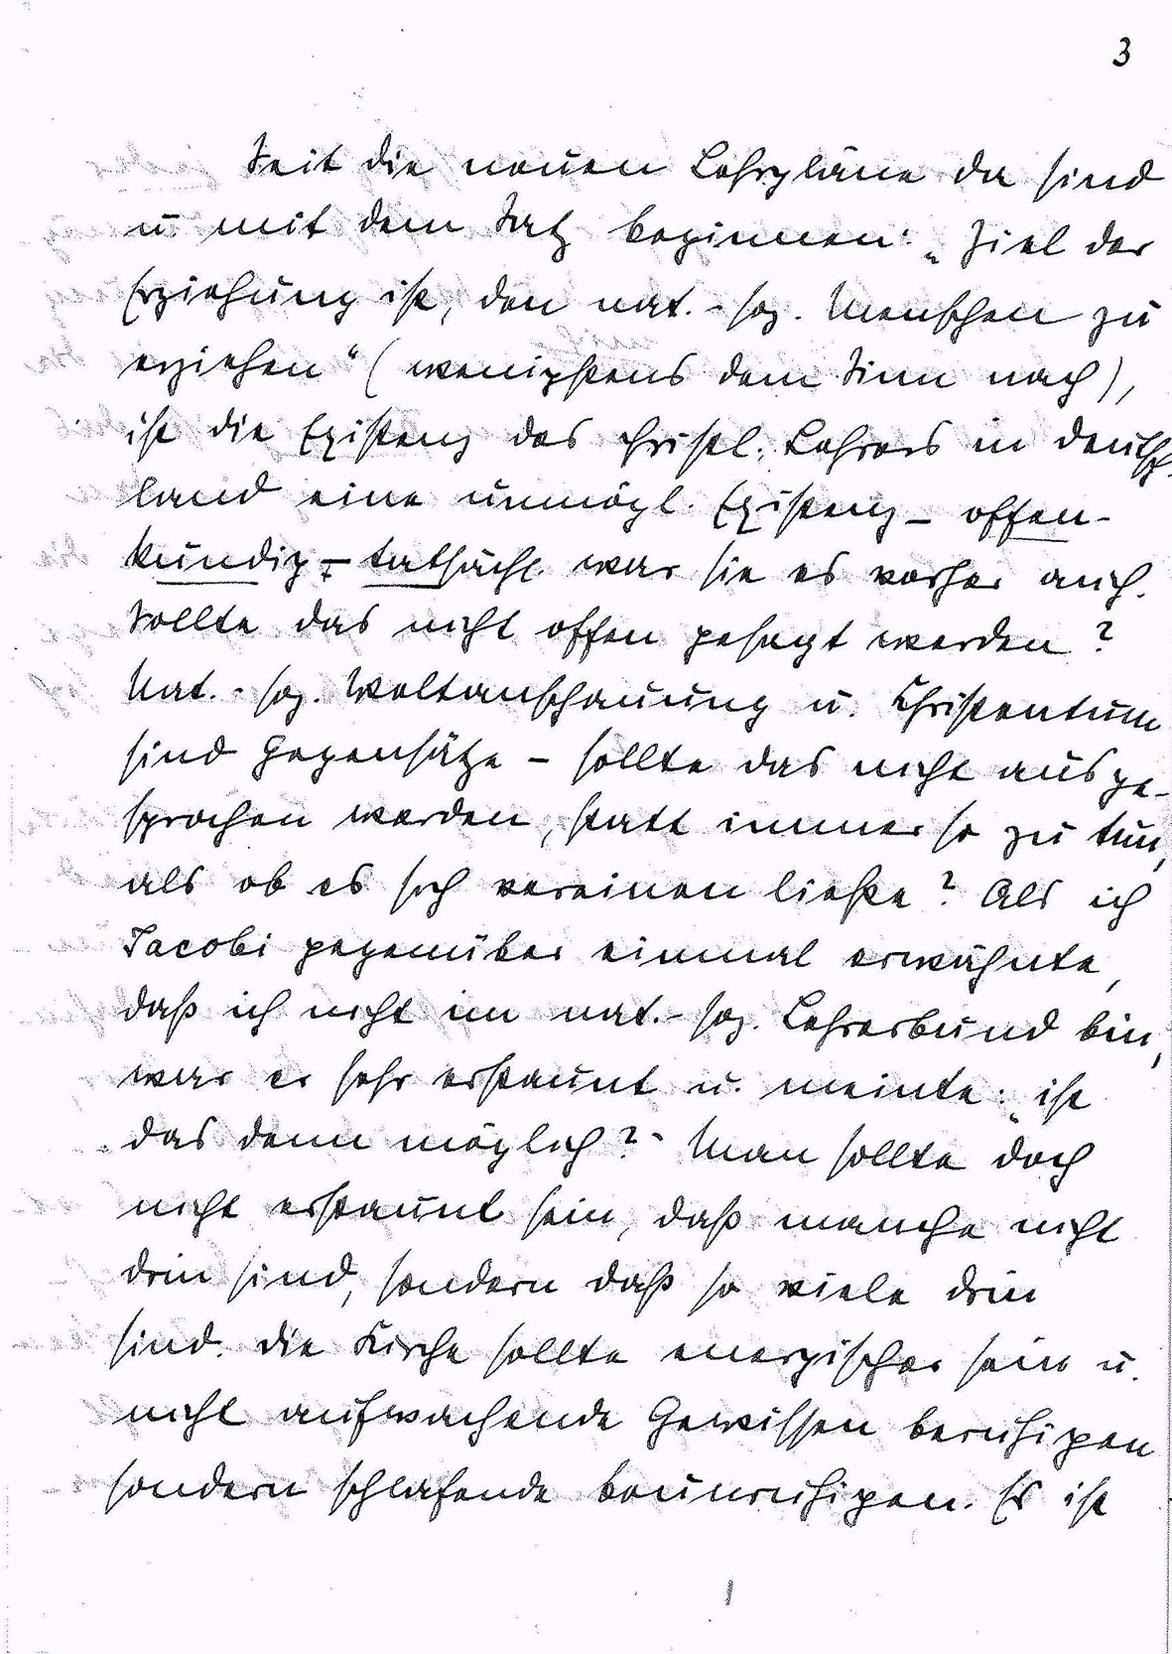 3
Seit die neuen Lehrpläne da sind
u. mit dem Satz beginnen: „Ziel der
Erziehung ist, den nat.-soz. Menschen zu
erziehen“ (wenigstens dem Sinn nach),
ist die Existenz des christl. Lehrers in Deutsch-
land eine unmögl. Existenz – offen-
kundig – tatsächl. war sie es vorher auch.
Sollte das nicht offen gesagt werden?
Nat.-soz. Weltanschauung u. Christentum
sind Gegensätze – sollte das nicht ausge-
sprochen werden, statt immer so zu tun,
als ob es sich vereinen ließe? Als ich
Jacobi gegenüber einmal erwähnte,
daß ich nicht im nat.-soz. Lehrerbund bin,
war er sehr erstaunt u. meinte: „ist
das denn möglich?“ Man sollte doch
nicht erstaunt sein, daß manche nicht
drin sind, sondern daß so viele drin
sind. Die Kirche sollte energischer sein u.
nicht aufwachende Gewissen beruhigen
sondern schlafende beunruhigen. Es ist